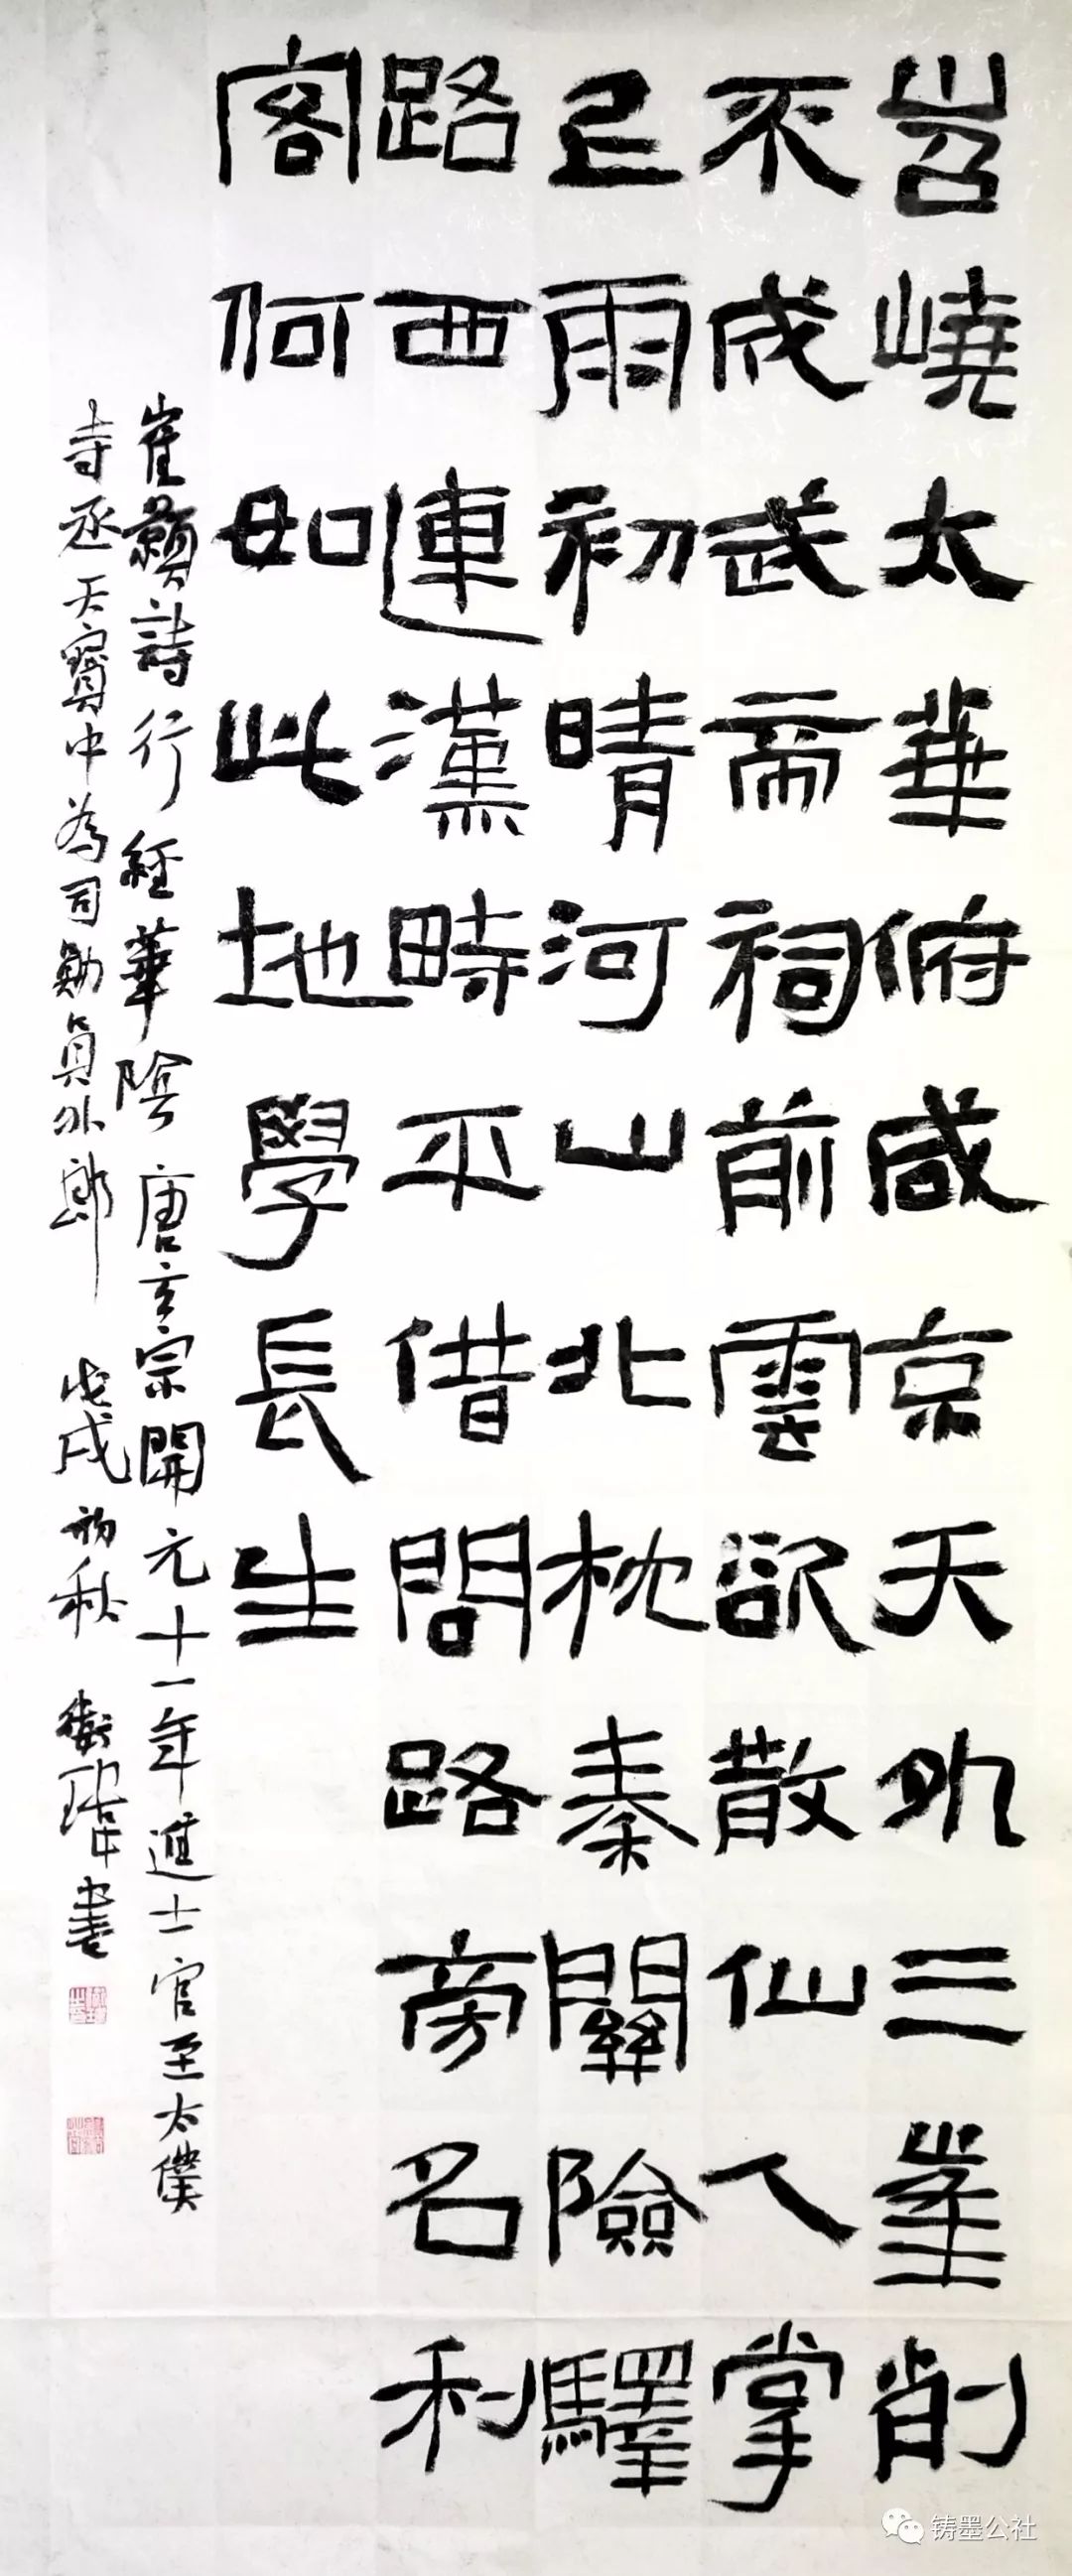 岧嶢太華俯咸京天外三峯削
不成武帝祠前雲欲散仙人掌
上雨初晴河山北枕秦關險驛
路西連漢畤平借問路旁名利
客何如此地學長生
崔顥詩行經華陰 唐玄宗開元十一年進士官至太僕
寺丞天寶中為司勛員外郎 戊戌初秋 書
铸墨公社